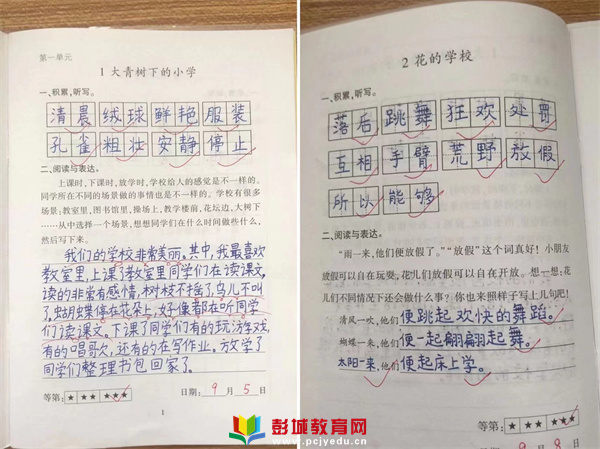 第一单元
1 大青树下的小学
一、积累，听写。
清晨 绒球 鲜艳 服装
孔雀 粗壮 安静 停止
二、阅读与表达。
上课时，下课时，放学时，学校给人的感觉是不一样的。
同学所在不同的场景做的事情也是不一样的。学校有很多
场景：教室里，图书馆里，操场上，教学楼前，花坛边，大树下
……从中选择一个场景，想想同学们在什么时间做些什么，
然后写下来。
我们的学校非常美丽。其中，我最喜欢
教室里，上课了教室里同学们在读课文，
读的非常有感情，树枝不摇了，鸟儿不叫
了。蝴蝶停在花朵上，好像都在听同学
们读课文。下课了同学们有的玩游戏，
有的唱哥欠，还有的在写作业。放学了
同学们整理书包回家了。
等第：★ ★★ ★★★
日期：9月5日
1
2 花的学校
一、积累，听写。
落后 跳舞 狂欢 处罚
互相 手臂 荒野 放假
所以 能够
二、阅读与表达。
“雨一来，他们便放假了。”“放假”这个词真好！小朋友
放假可以自在玩耍，花儿们放假可以自在开放。想一想：花
儿们不同情况下还会做什么事？你也来照样子写上几句吧！
清风一吹，他们便跳起欢快的舞蹈。
蝴蝶一来，他们便一起翩翩起舞。
太阳一来，他们便起床上学。
等第：★ ★★ ★★★
9月8日
彭城教育网
www.pcjyedu.cn